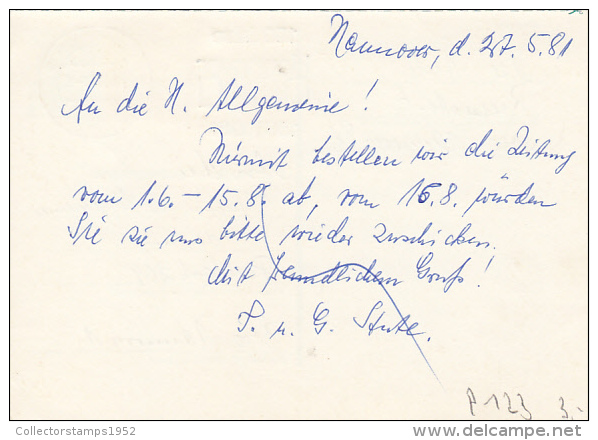 Hannover, d. 27. 5. 81
An die H. Allgemeine!
Hiermit bestellen wir die Zeitung
vom 1.6. – 15.8. ab, vom 16.8. würden
Sie sie uns bitte wieder zuschicken.
Mit freundlichem Gruß!
u. G. Stute.
P 123 3.-
Collectorstamps1952
delcampe.net